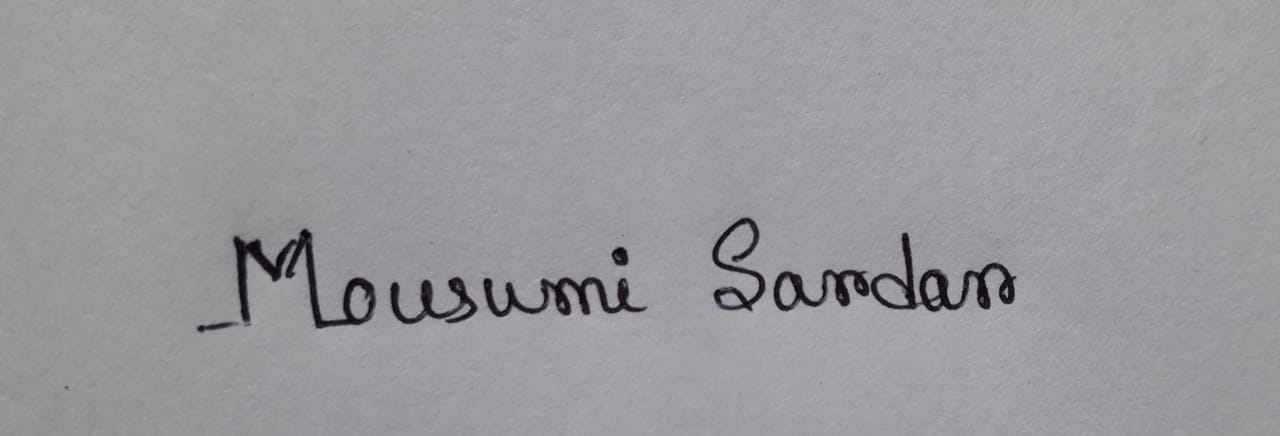 Mousumi Sardar